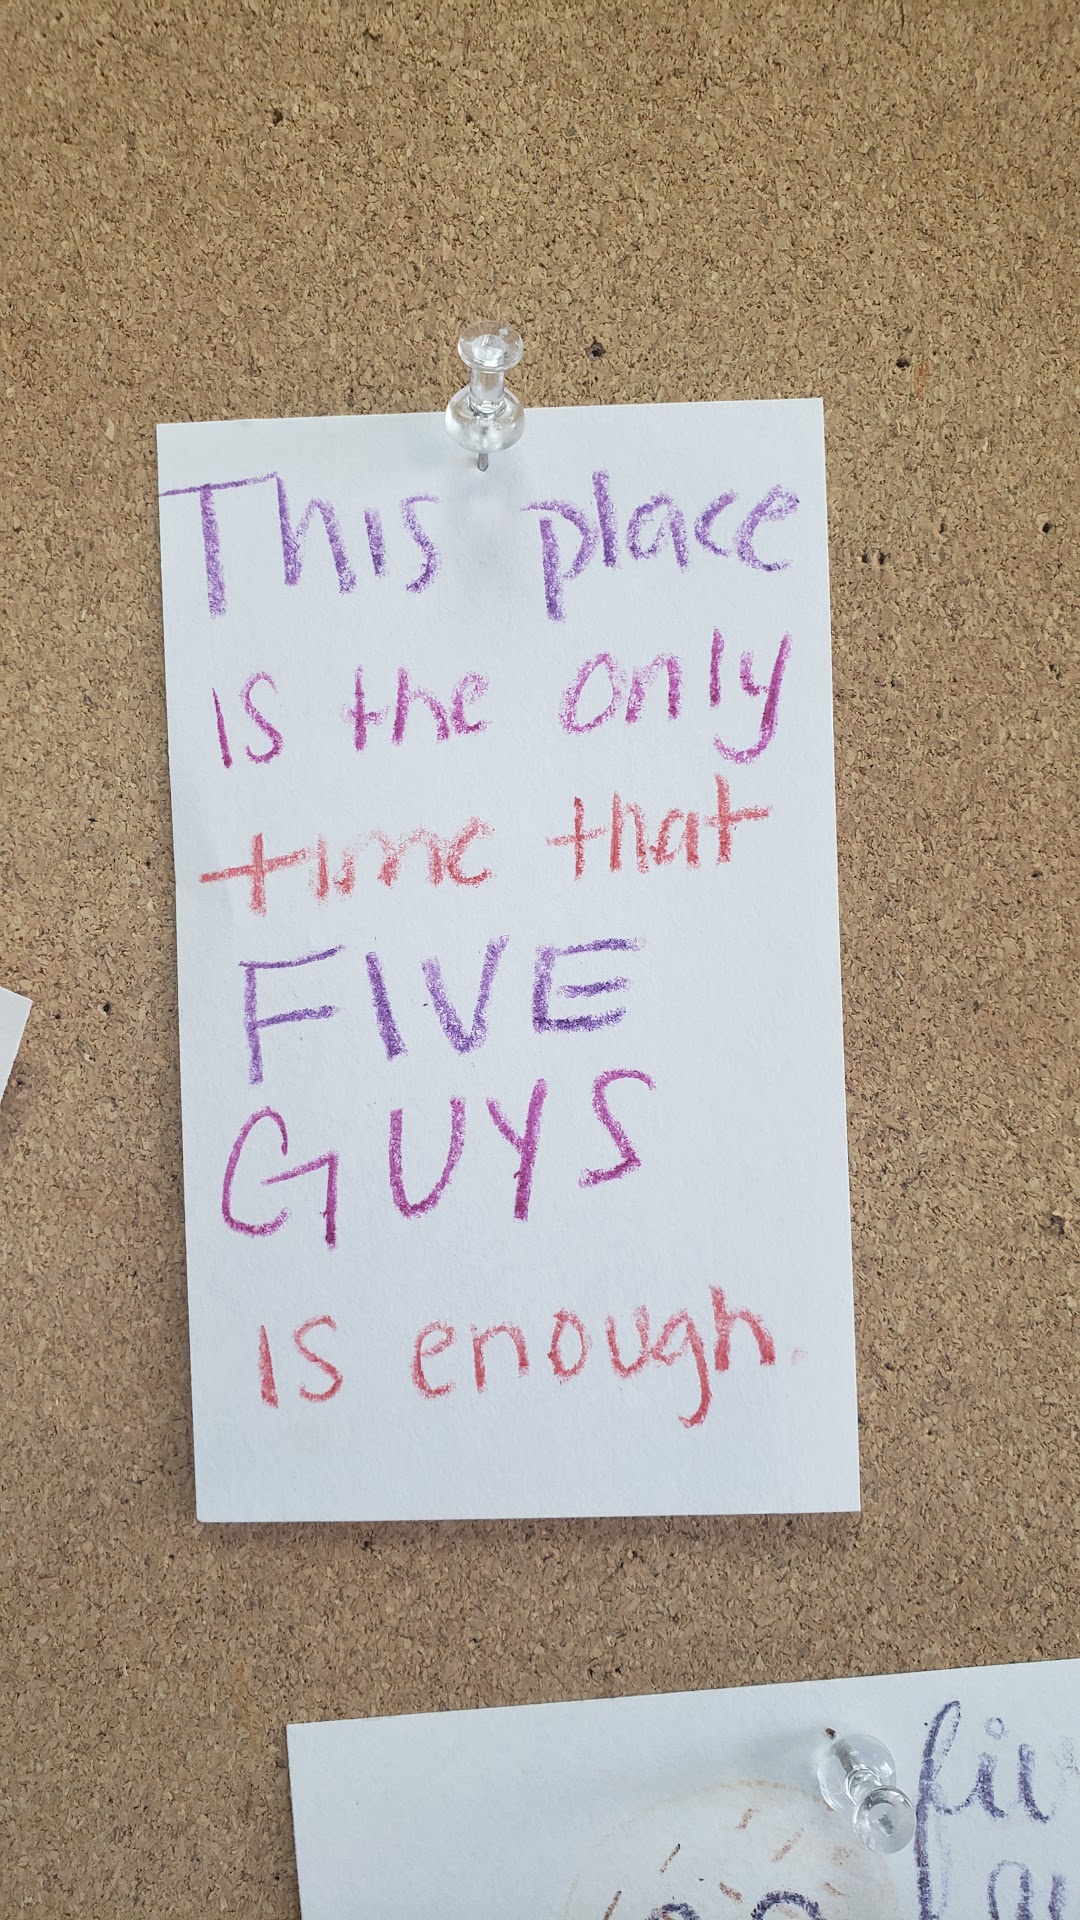 This place
is the only
time that
FIVE
GUYS
is enough.